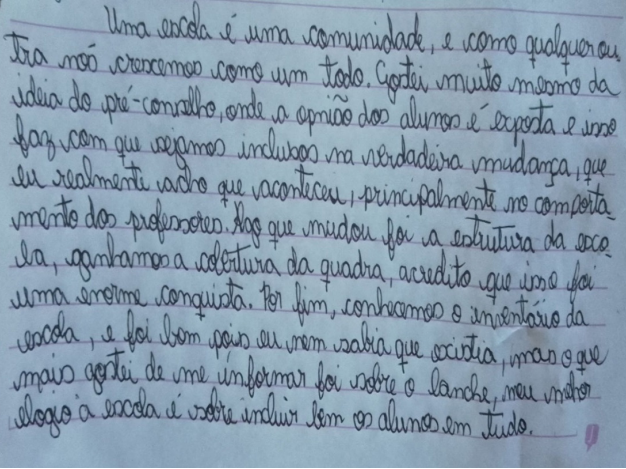 Uma escola é uma comunidade, e como qualquer ou
tra nós crescemos como um todo. Gostei muito mesmo da
ideia do pré-conselho, onde a opnião dos alunos é exposta e isso
faz com que sejamos inclusos na verdadeira mudança, que
eu realmente acho que aconteceu, principalmente no comporta-
mento dos professores. Algo que mudou foi a estrutura da esco-
la, ganhamos a cobertura da quadra, acredito que isso foi
uma enorme conquista. Por fim, conhecemos o inventário da
escola, e foi bom pois eu nem sabia que existia, mas o que
mais gostei de me informar foi sobre o lanche, meu melhor
elogio à escola é sobre incluir bem os alunos em tudo.